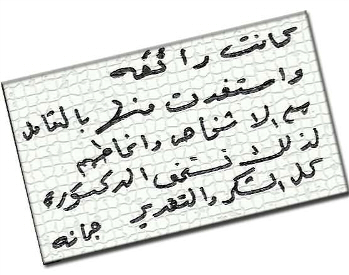 كانت رائعه
واستفدت منها بالتعامل
مع الاشخاص وانماطهم
لذلك تستحق الدكتوره
كل الشكر والتقدير جمانه